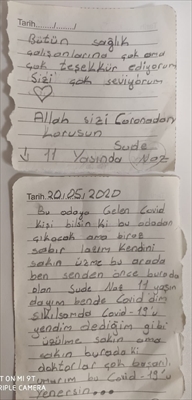 Tarih......./......./.......
Bütün sağlık
çalışanlarına çok ama
çok teşekkür ediyorum
Sizi çok seviyorum
Allah sizi Coronadan
korusun
Sude
11 Yaşında Naz
Tarih. 20/05/2020
Bu odaya Gelen Covid
Kişi bilsin ki bu odadan
çıkacak ama biraz
sabır lazım kendini
sakın üzme bu arada
ben senden önce burada
olan Sude Naz 11 yaşın
dayım bende Covid dim
sıkılsamda Covid-19'u
yendim dediğim gibi
üzülme sakin ama
sakin buradaki
doktorlar çok başarılı
bu Covid-19'u
yenersin...
ON MI 9T
RIPLE CAMERA